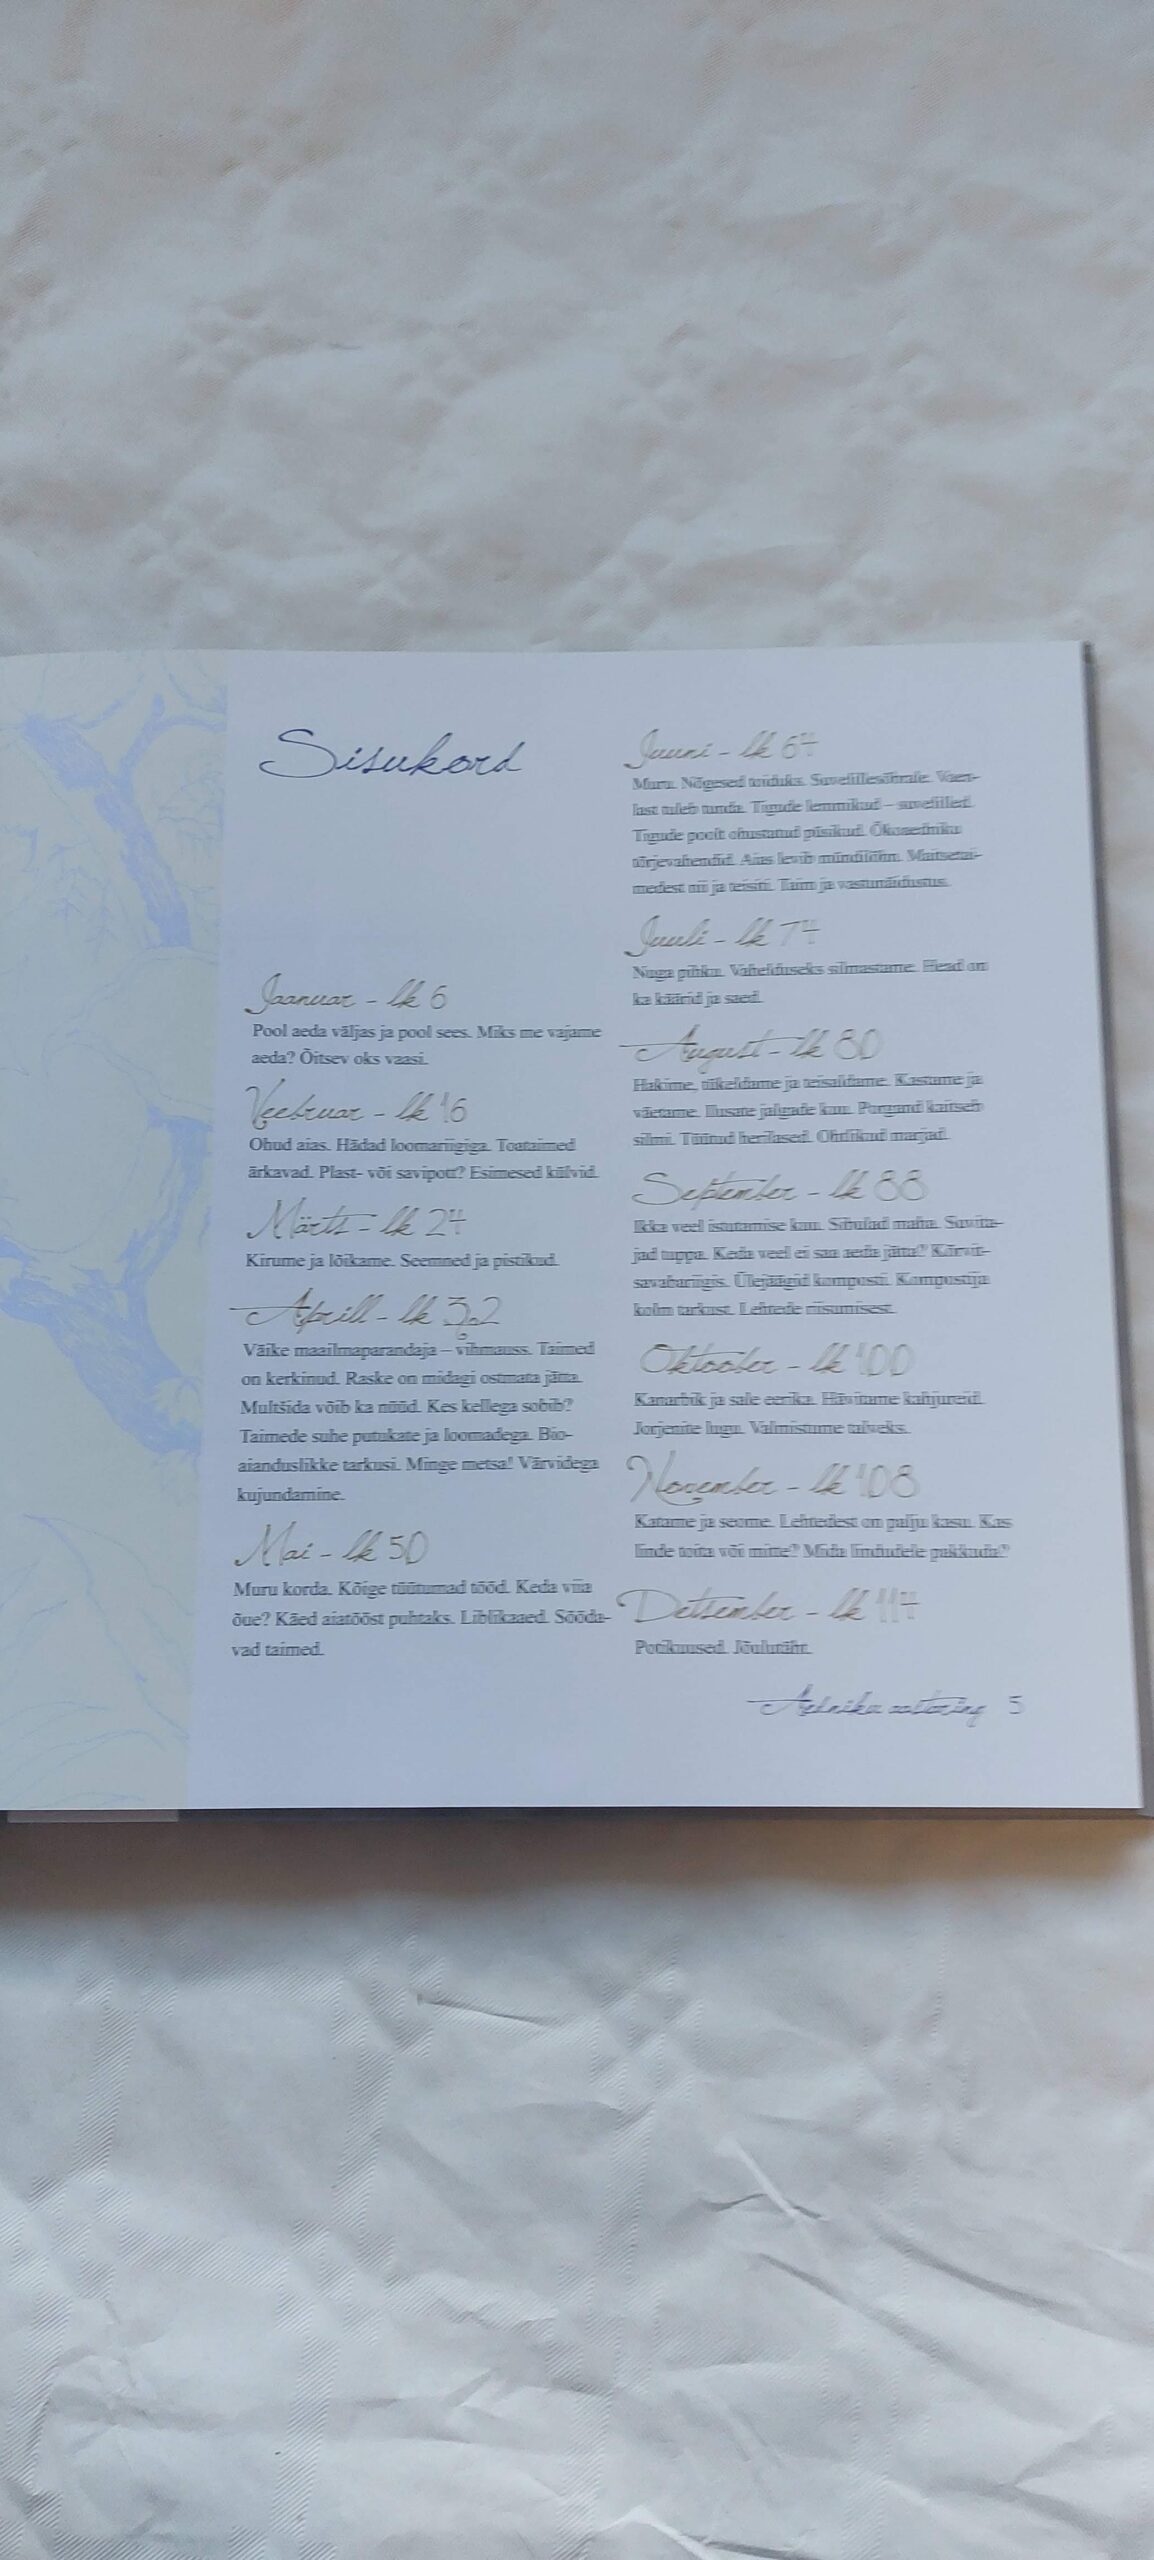 Sisukord
Jaanuar - lk 6
Pool aeda väljas ja pool sees. Miks me vajame
aeda? Õitsev oks vaasi.
Veebruar - lk 16
Ohud aias. Hädad loomariigiga. Toataimed
ärkavad. Plast- või savipott? Esimesed külvid.
Märts - lk 24
Kirume ja lõikame. Seemned ja pistikud.
Aprill - lk 32
Väike maailmaparandaja – vihmauss. Taimed
on kerkinud. Raske on midagi ostmata jätta.
Multšida võib ka nüüd. Kes kellega sobib?
Taimede suhe putukate ja loomadega. Bio-
aianduslikke tarkusi. Minge metsa! Värvidega
kujundamine.
Mai - lk 50
Muru korda. Kõige tüütumad tööd. Keda viia
õue? Käed aiatööst puhtaks. Liblikaaed. Sööda-
vad taimed.
Juuni - lk 64
Muru. Nõgesed toiduks. Suvelillesõbrale. Vaen-
last tuleb tunda. Tigude lemmikud – suvelilled.
Tigude poolt ohustatud püsikud. Ökoaedniku
tõrjevahendid. Aias levib mündilõhn. Maitsetai-
medest nii ja teisiti. Taim ja vastunäidustus.
Juuli - lk 74
Nuga pihku. Vahelduseks silmastame. Head on
ka käärid ja saed.
August - lk 80
Hakime, tükeldame ja teisaldame. Kastame ja
väetame. Ilusate jalgade kuu. Porgand kaitseb
silmi. Tüütud herilased. Ohtlikud marjad.
September - lk 88
Ikka veel istutamise kuu. Sibulad maha. Suvita-
jad tuppa. Keda veel ei saa aeda jätta? Kõrvit-
savabariigis. Ülejäägid komposti. Kompostija
kolm tarkust. Lehtede riisumisest.
Oktoober - lk 100
Kanarbik ja sale eerika. Hävitame kahjureid.
Jorjenite lugu. Valmistume talveks.
November - lk 108
Katame ja seome. Lehtedest on palju kasu. Kas
linde toita või mitte? Mida lindudele pakkuda?
Detsember - lk 114
Potikuused. Jõulutäht.
Aedniku aastaring 5